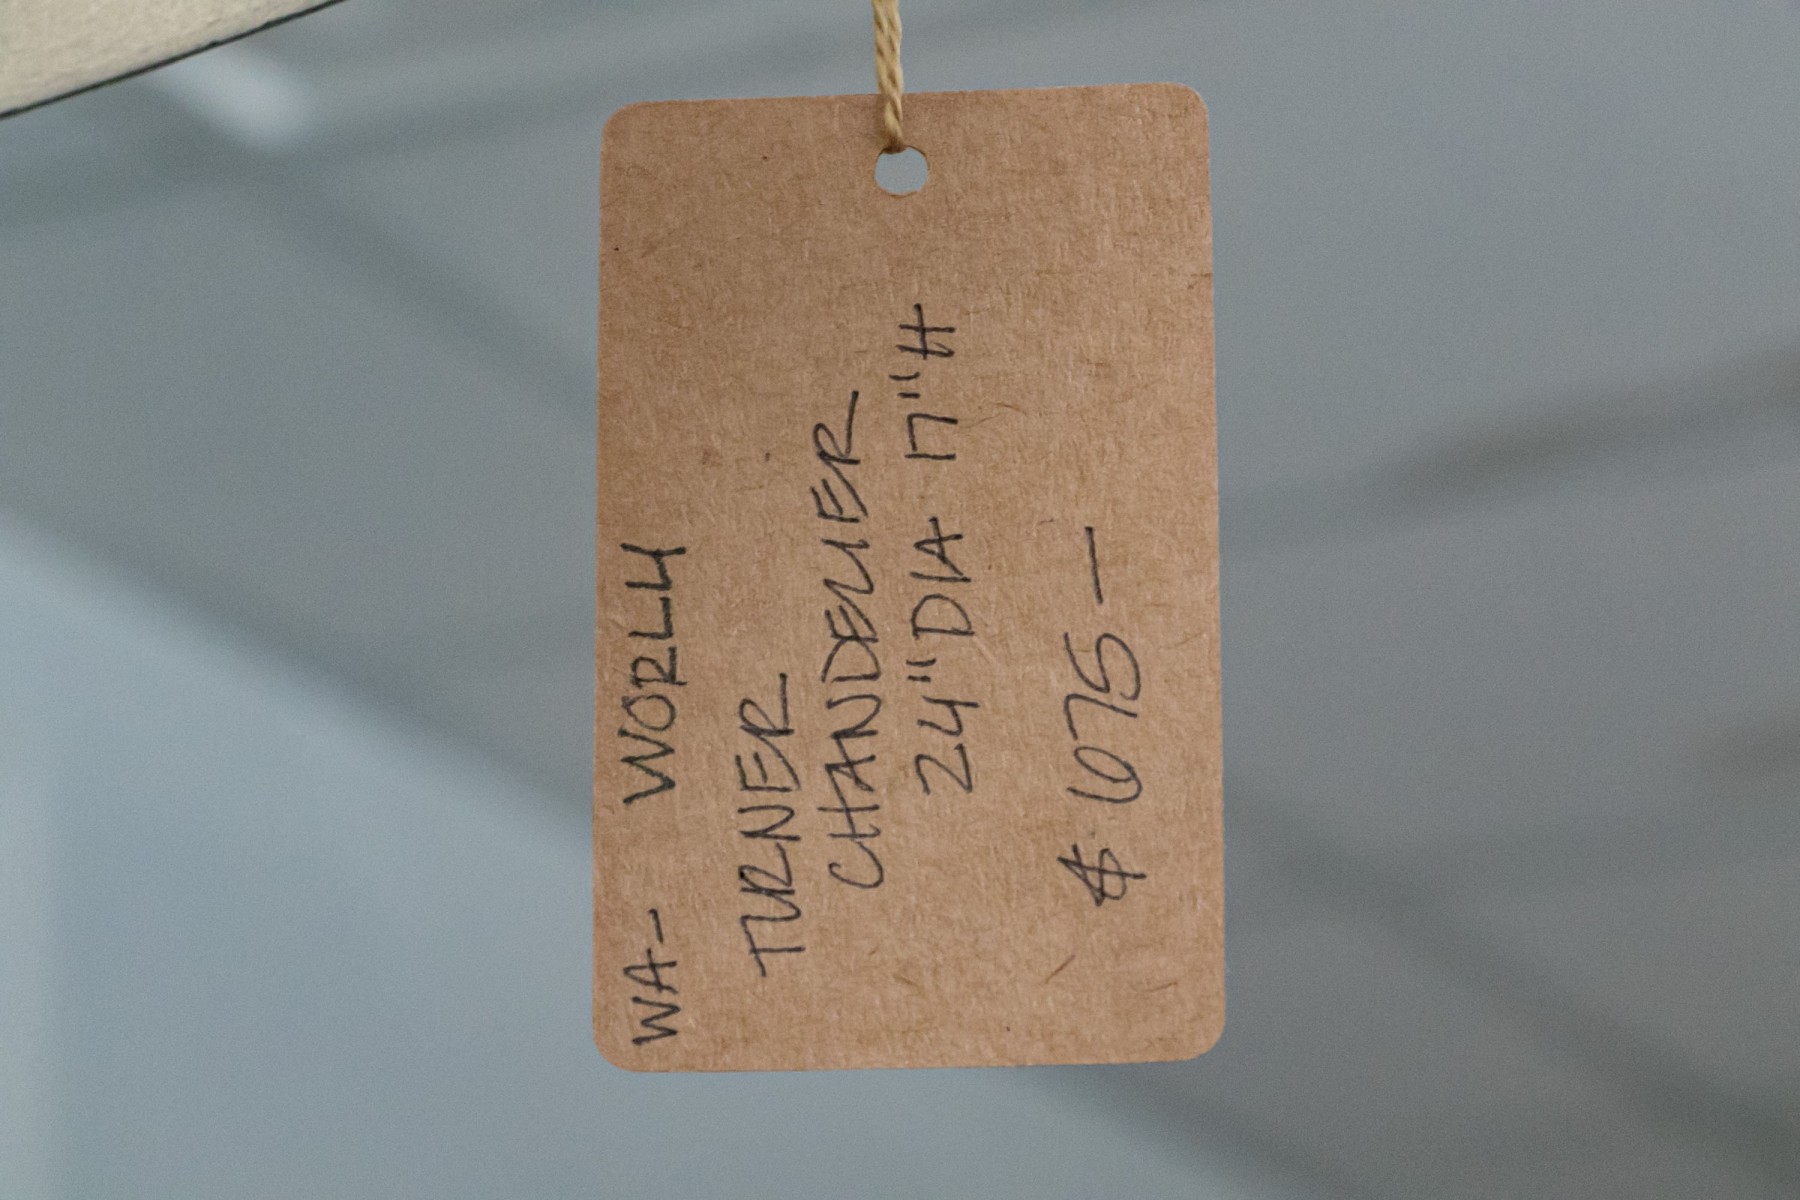 WA- WORLY
TURNER
CHANDELIER
24" DIA 17"H
$ 675—